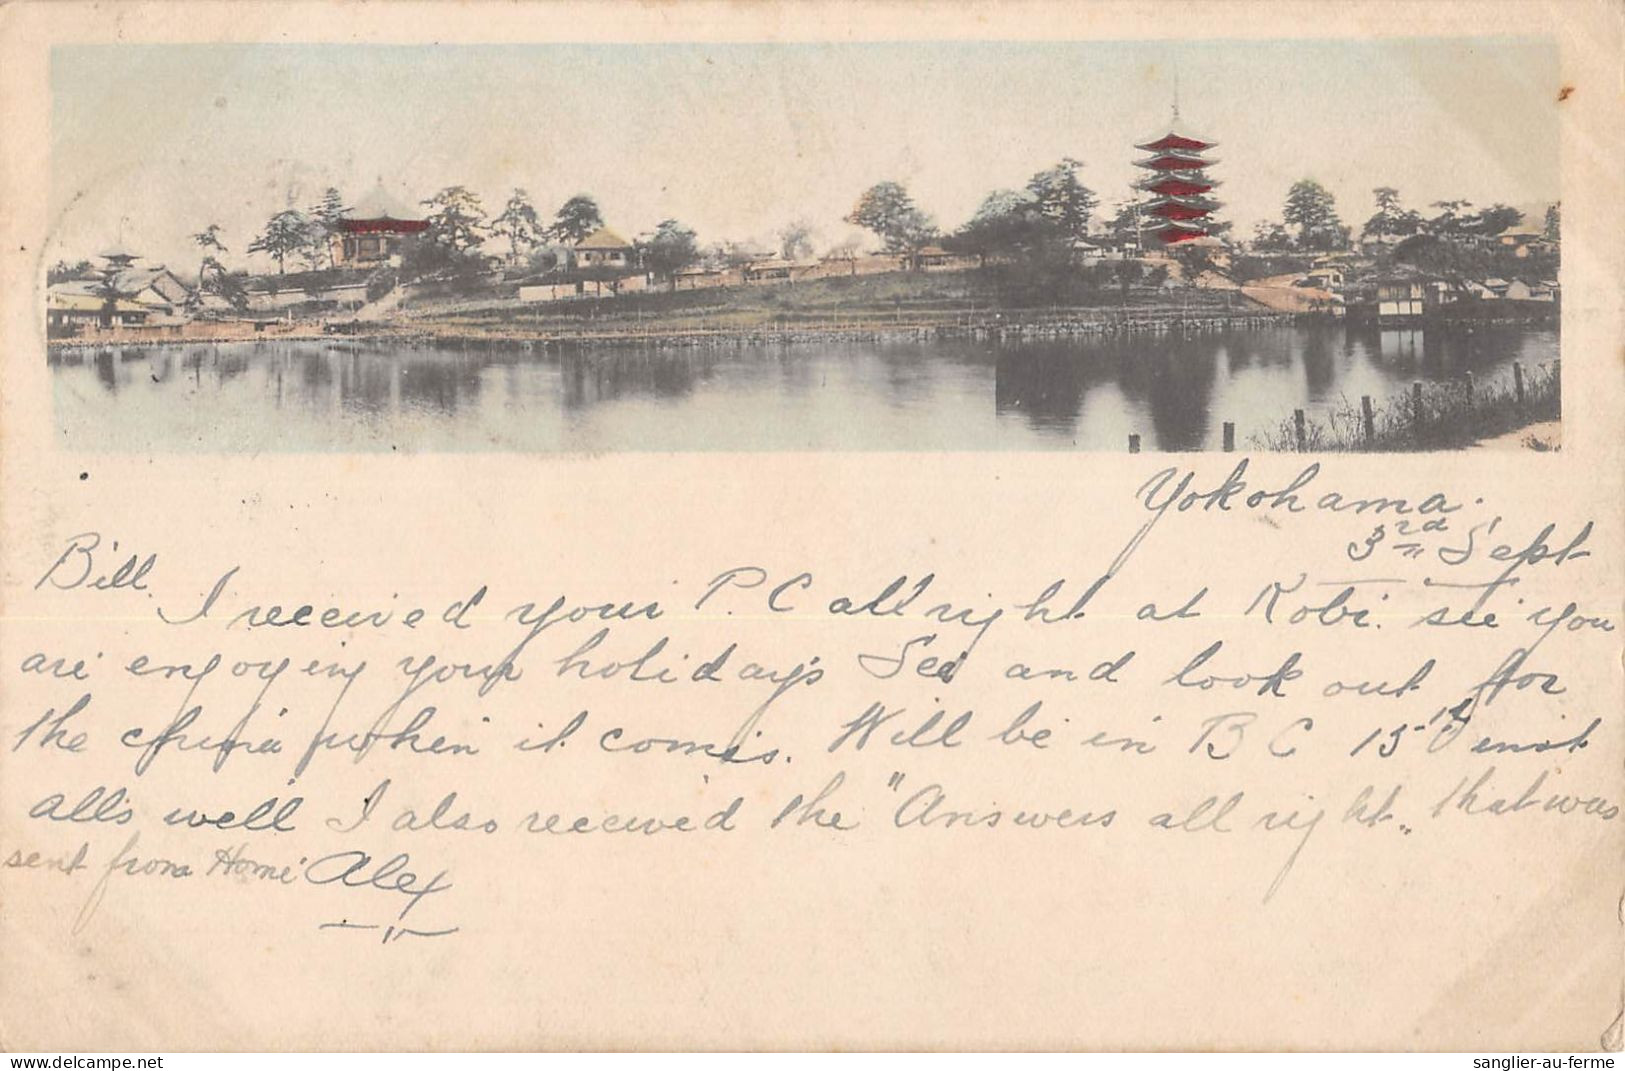 Yokohama.
3rd Sept
Bill.
I received your P.C all right at Kobi. see you
are enjoying your holidays See and look out for
the china when it comes. Will be in B C 15th inst
alls well I also received the "Answers all right„ that was
sent from Home Alex
www.delcampe.net
sanglier-au-ferme